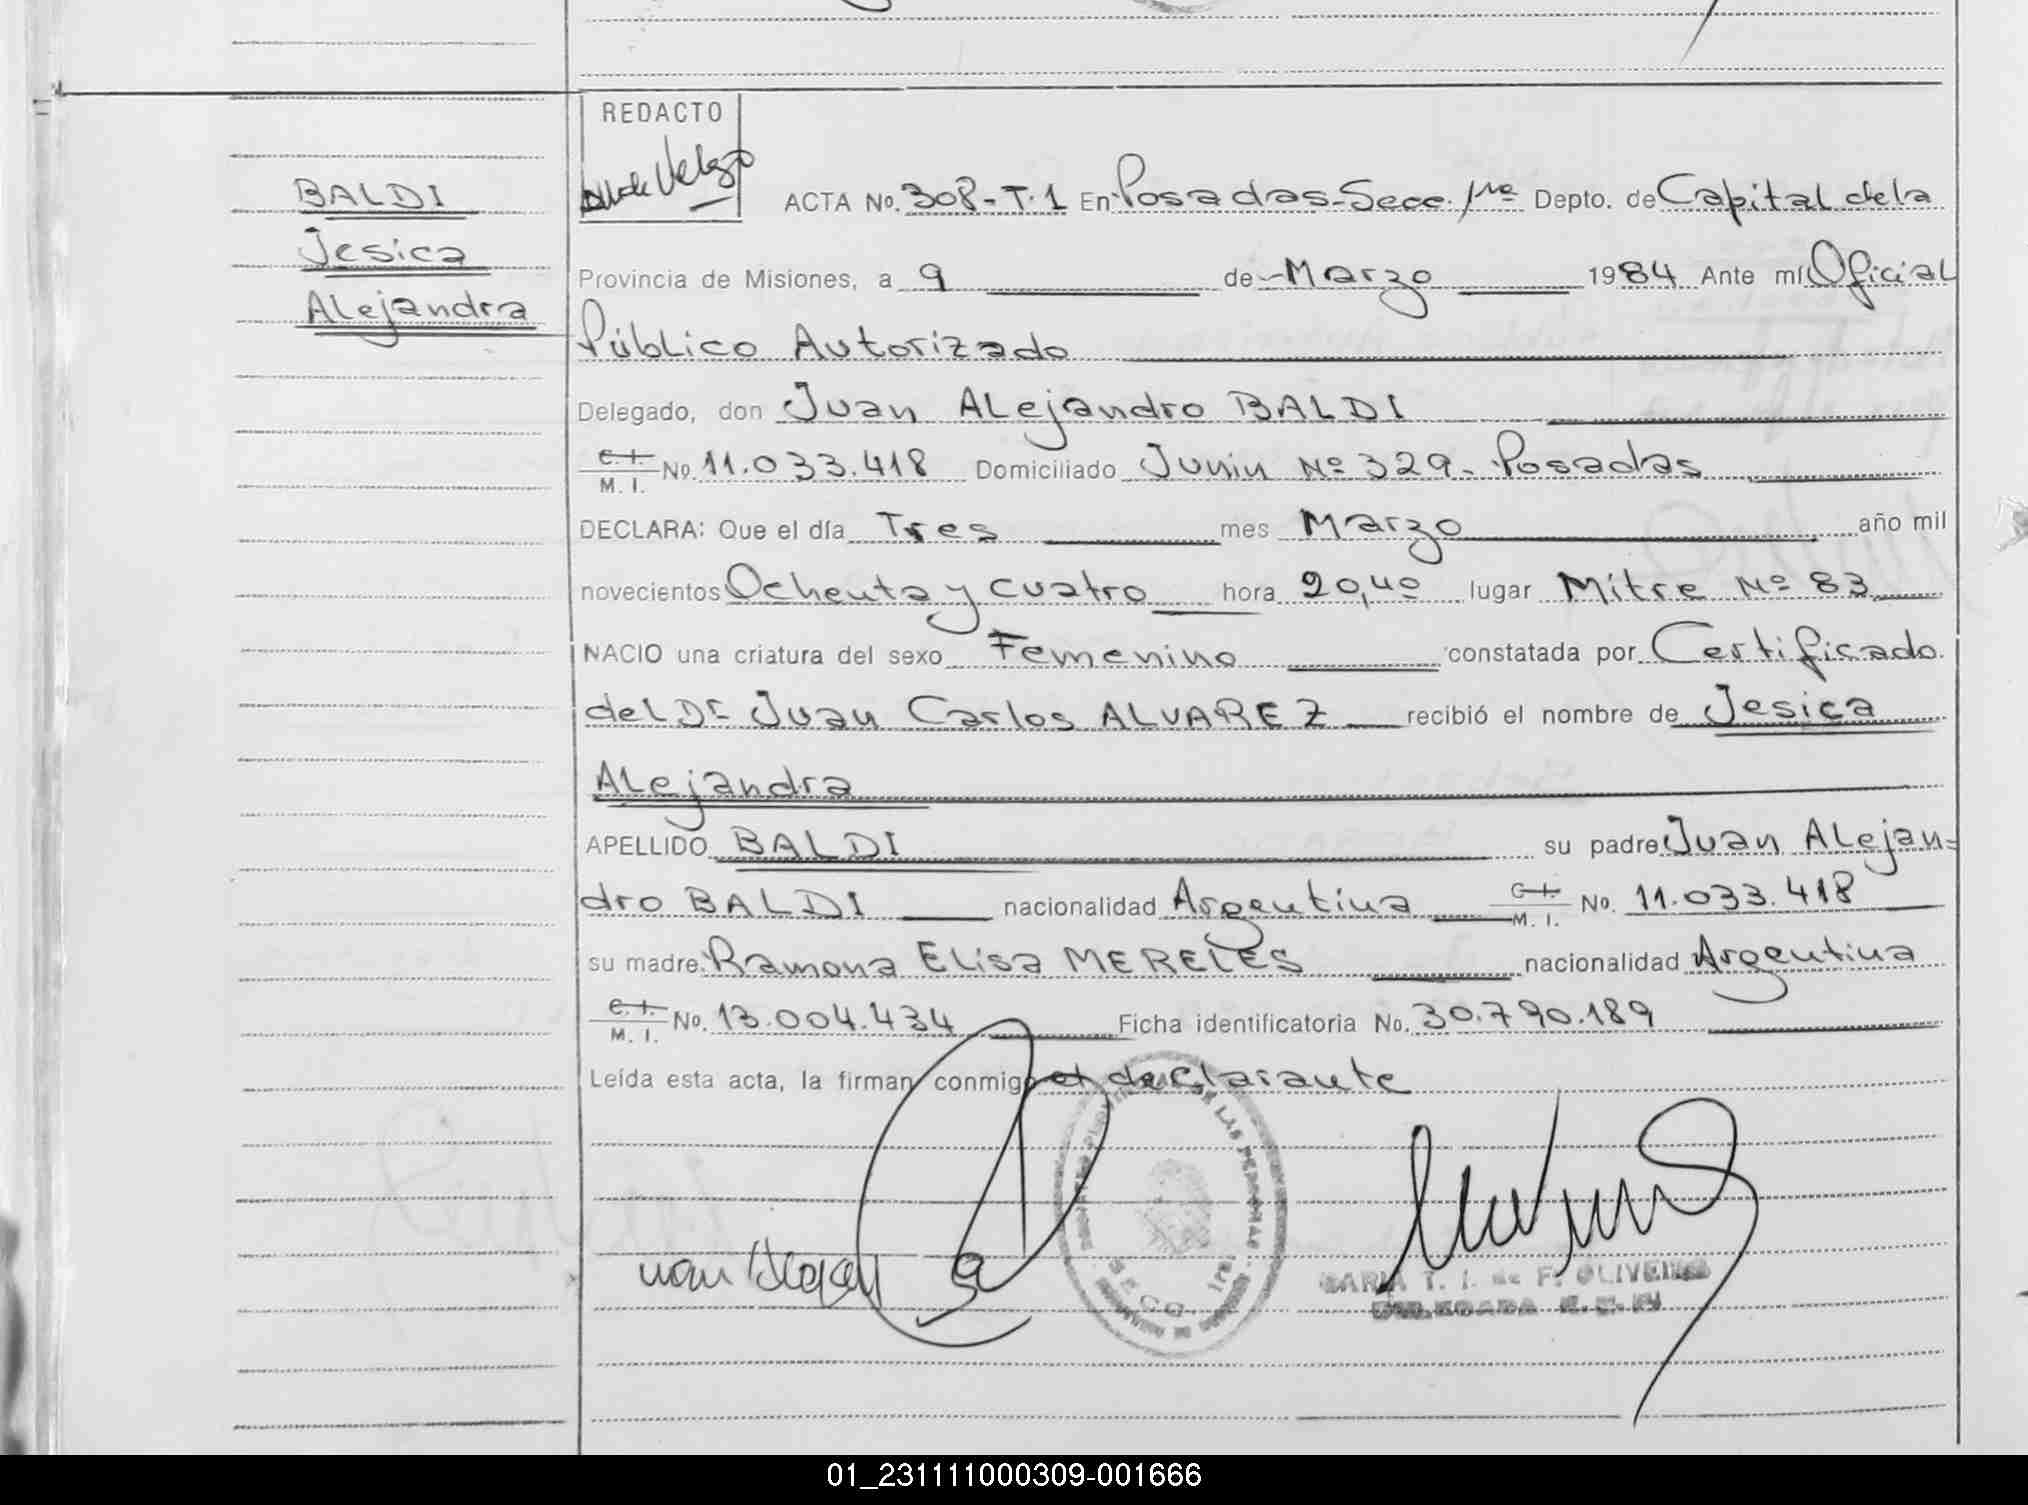 BALDI
Jesica
Alejandra
REDACTO
ACTA No. 308-T.1 En Posadas-Secc. 1ra Depto. de Capital de la
Provincia de Misiones, a 9 de Marzo 1984 Ante mí Oficial
Público Autorizado
Delegado, don Juan Alejandro BALDI
C. I. / M. I. No. 11.033.418 Domiciliado Junin Nº 329- Posadas
DECLARA: Que el día Tres mes Marzo año mil
novecientos Ochenta y cuatro hora 20,40 lugar Mitre Nº 83
NACIO una criatura del sexo Femenino constatada por Certificado
del Dr Juan Carlos ALVAREZ recibió el nombre de Jesica
Alejandra
APELLIDO BALDI su padre Juan Alejan=
dro BALDI nacionalidad Argentina C. I. / M. I. No. 11.033.418
su madre Ramona Elisa MERELES nacionalidad Argentina
C. I. / M. I. No. 13.004.434 Ficha identificatoria No. 30.790.189
Leída esta acta, la firman conmigo el declarante
DE LAS PERSONAS
SECC. 1ra.
MARIA T. I. de F. OLIVEIRA
DELEGADA
01_231111000309-001666